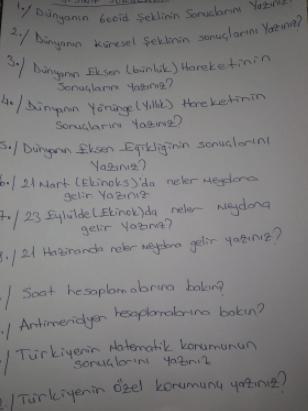 1./ Dünyanın Geoid Şeklinin Sonuçlarını Yazınız?
2./ Dünyanın Küresel Şeklinin sonuçlarını Yazınız?
3./ Dünyanın Eksen (Günlük) Hareketinin
Sonuçlarını Yazınız?
4./ Dünyanın Yörünge (Yıllık) Hareketinin
Sonuçlarını Yazınız?
5./ Dünyanın Eksen Eğikliğinin sonuçlarını
Yazınız?
6./ 21 Mart (Ekinoks)'da neler Meydana
gelir Yazınız
7./ 23 Eylülde (Ekinok)da neler Meydana
gelir Yazınız?
8./ 21 Haziranda neler Meydana gelir yazınız?
/ Saat hesaplamalarına bakın?
/ Antimeridyen hesaplamalarına bakın?
/ Türkiyenin Matematik konumunun
sonuçlarını yazınız
/ Türkiyenin özel konumunu yazınız?